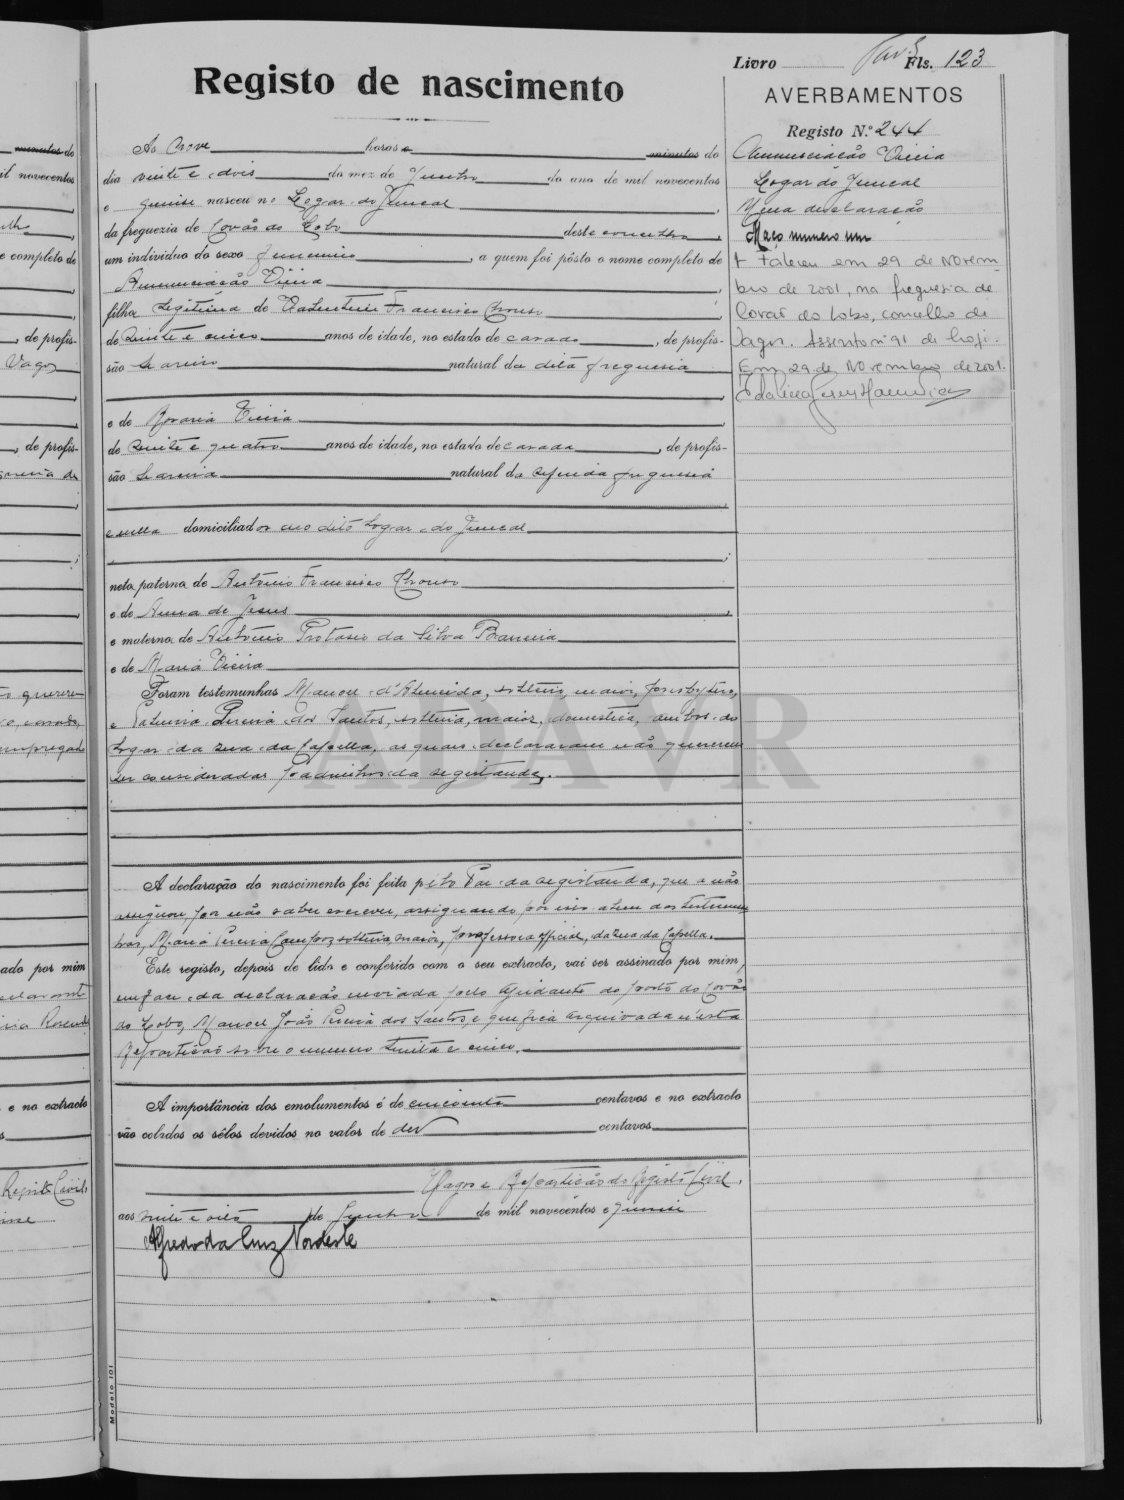 Livro Fls. 123
Registo de nascimento
AVERBAMENTOS
Registo N.º 244
Annunciação Vieira
Logar do Juncal
Uma declaração
Maço numero um
† Faleceu em 29 de Novem-
bro de 2001, na freguesia de
Covão do Lobo, concelho de
Vagos. Assento nº 91 de hoje.
Em 29 de Novembro de 2001.
Ás nove horas e minutos do
dia vinte e dois do mez de Junho do ano de mil novecentos
e quinse nasceu no Logar do Juncal,
da freguezia de Covão do Lobo deste concelho,
um individuo do sexo femenino, a quem foi pôsto o nome completo de
Annunciação Vieira,
filha legitima de Valentim Francisco
de vinte e cinco anos de idade, no estado de casado, de profis-
são Seareiro natural da dita freguesia
e de Rosaria Vieira
de vinte e quatro anos de idade, no estado de casada, de profis-
são Seareira natural da referida freguesia
e nella domiciliados no dito logar do Juncal
neta paterna de António Francisco
e de Anna de Jesus
e materna de António Protasio da Silva
e de Maria Vieira
Foram testemunhas Manoel d'Almeida, solteiro, maior, presbytero,
e Pereira dos Santos, solteira, maior, domestica, ambos do
logar da rua da Capella, as quais declararam não quererem
ser considerados padrinhos da registanda.
A declaração do nascimento foi feita pelo Pae da registanda, que a não
assignou por não saber escrever, assignando por isso alem das testemu-
nhas, Maria Pereira Campos, solteira, maior, professora official, da rua da Capella.
Este registo, depois de lido e conferido com o seu extracto, vai ser assinado por mim,
em face da declaração enviada pelo Ajudante do posto do Covão
do Lobo, Manoel João Pereira dos Santos, e que fica arquivada n'esta
Repartição sobre o numero trinta e cinco.
A importância dos emolumentos é de cincoenta centavos e no extracto
vão colados os sêlos devidos no valor de dez centavos
Vagos e Repartição do Registo Civil,
aos vinte e oito de Junho de mil novecentos e quinse
Alfredo da Cruz Nordeste
Modelo 101
ADAVR
minutos do
mil novecentos
e completo de
, de profis-
Vagos
, de profis-
quere-
ado por mim
e no extracto
Registo Civil,